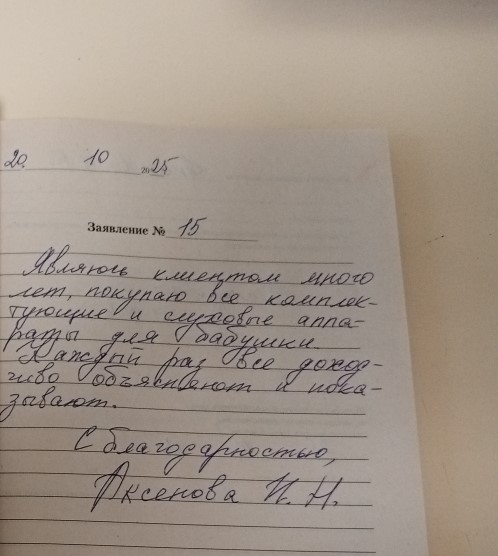 20. 10 2025
Заявление № 15
Являюсь клиентом много
лет, покупаю все комплек-
тующие и слуховые аппа-
раты для бабушки
Каждый раз все доход-
чиво объясняют и пока-
зывают.
С благодарностью,
Аксенова И. Н.